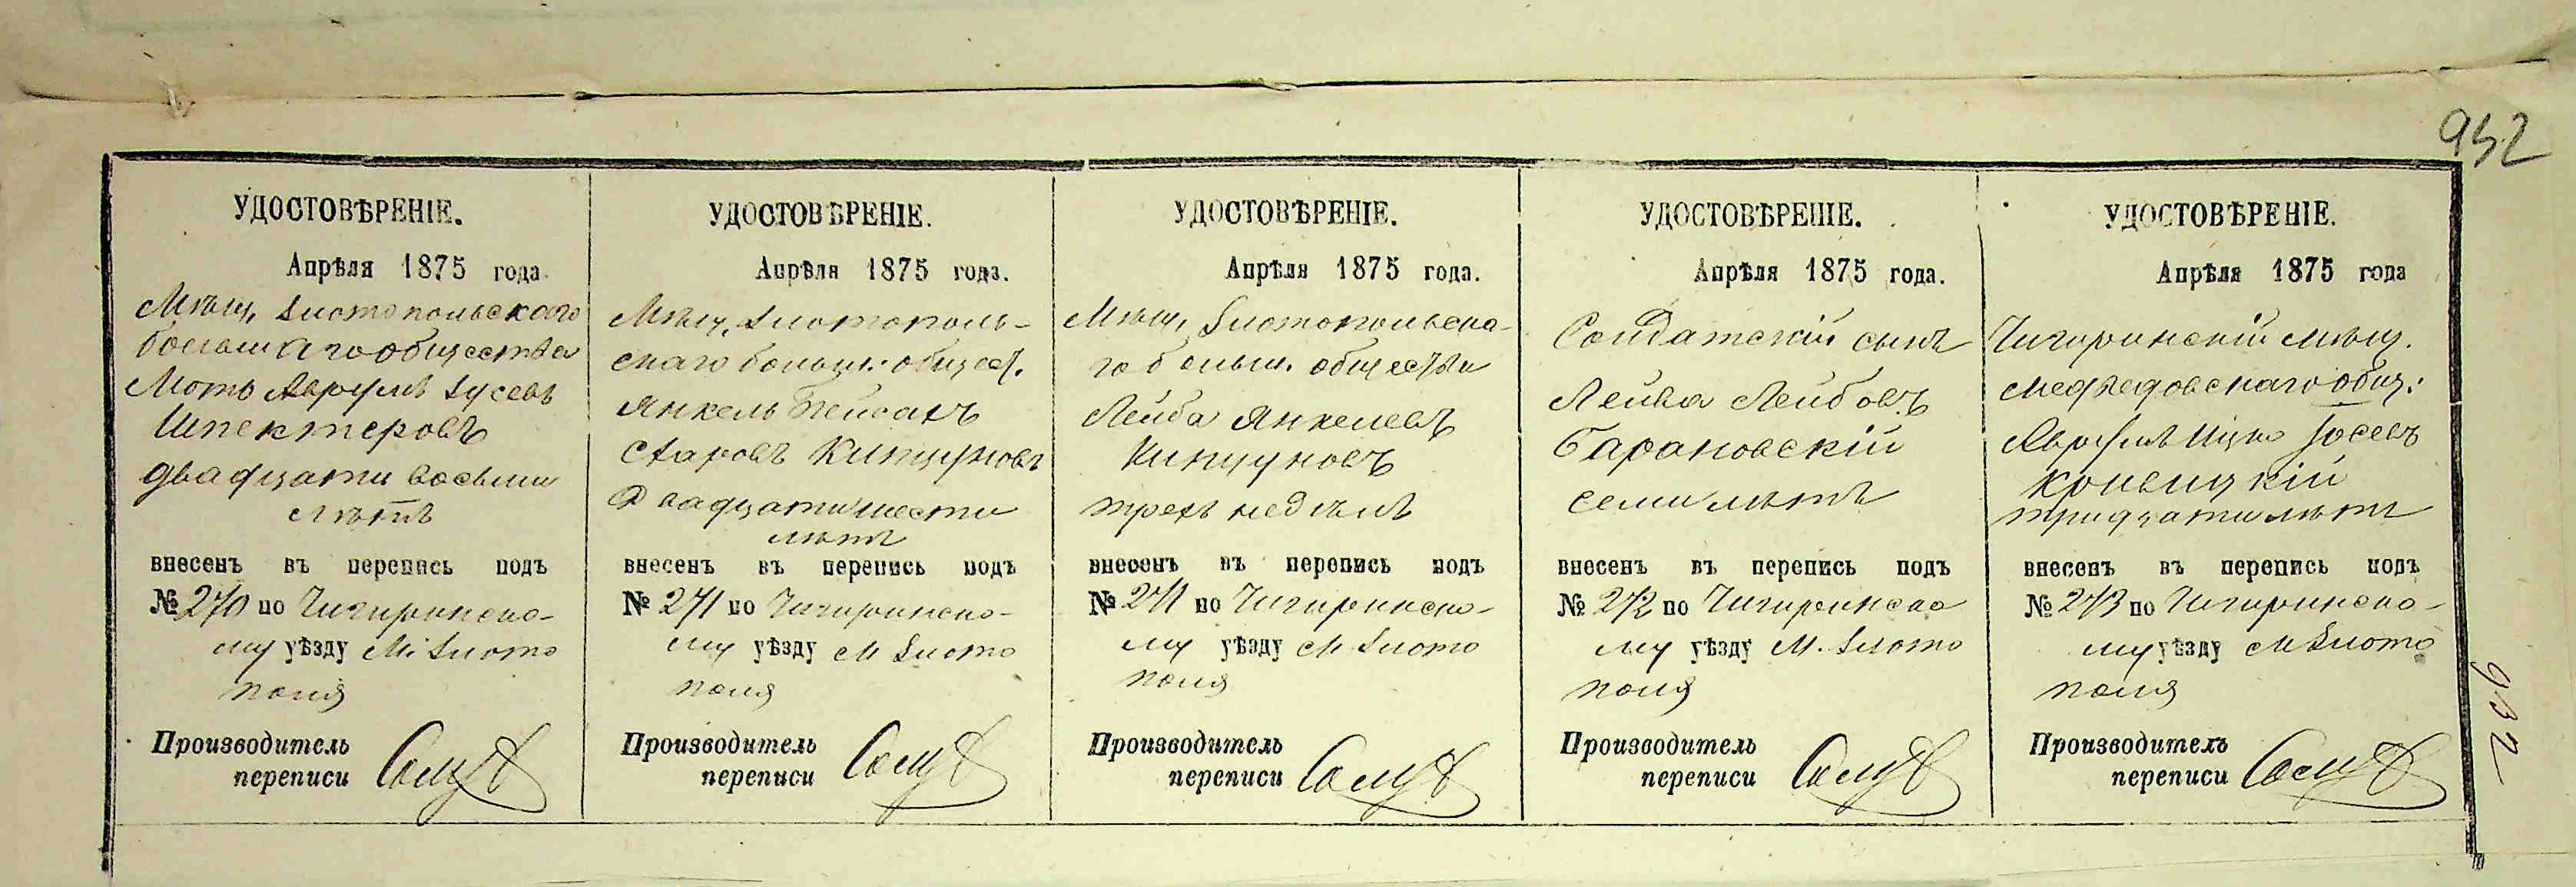 952
УДОСТОВѢРЕНІЕ.
Апрѣля 1875 года.
Мѣщ. Златопольского
большаго общества
Моть Аврумъ Зусевъ
Шпектеровъ
двадцати восьми
лѣтъ
внесенъ въ перепись подъ
№ 270 по Чигиринско-
му уѣзду М. Злото
поля
Производитель
переписи
УДОСТОВѢРЕНІЕ.
Апрѣля 1875 года.
Мѣщ. Злотополь-
скаго больш: общест.
Янкель Пейсахъ
Кипцуновъ
Двадцати шести
лѣтъ
внесенъ въ перепись подъ
№ 271 по Чигиринско-
му уѣзду М Злото
поля
Производитель
переписи
УДОСТОВѢРЕНІЕ.
Апрѣля 1875 года.
Мѣщ. Злотопольска-
го больш. общества
Лейба Янкелевъ
Кипцуновъ
трехъ недѣль
внесенъ въ перепись подъ
№ 271 по Чигиринско-
му уѣзду М Злото
поля
Производитель
переписи
УДОСТОВѢРЕНІЕ.
Апрѣля 1875 года.
Солдатскій сынъ
Лейба Лейбовъ
Барановскій
семи лѣтъ
внесенъ въ перепись подъ
№ 272 по Чигиринско
му уѣзду М. Злото
поля
Производитель
переписи
УДОСТОВѢРЕНІЕ.
Апрѣля 1875 года
Чигиринскій мѣщ.
медведовскаго общ:
Аврумъ Ицко Іосевъ
тридцати лѣтъ
внесенъ въ перепись подъ
№ 273 по Чигиринско-
му уѣзду М Злото
поля
Производитель
переписи
932